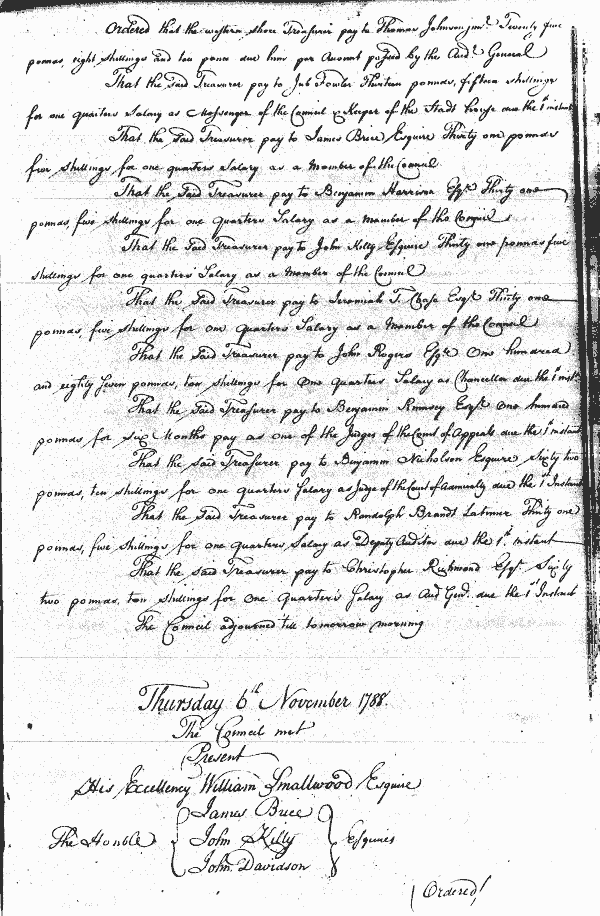 Ordered that the western shore Treasurer pay to Thomas Johnson junr. Twenty five
pounds, eight shillings and ten pence due him per Account passed by the Audr. General
That the said Treasurer pay to Jub Fowler Thirteen pounds, fifteen shillings
for one quarters Salary as Messenger of the Council & Keeper of the Stadt House due the 1st instant
That the said Treasurer pay to James Brice Esquire Thirty one pounds
five shillings for one quarters Salary as a Member of the Council
That the said Treasurer pay to Benjamin Harrison Esqr. Thirty one
pounds, five shillings for one Quarters Salary as a Member of the Council
That the said Treasurer pay to John Kilty Esquire Thirty one pounds five
shillings for one quarters Salary as a Member of the Council
That the said Treasurer pay to Jeremiah T. Chase Esqr. Thirty one
pounds, five shillings for one Quarters Salary as a Member of the Council
That the said Treasurer pay to John Rogers Esqre One hundred
and eighty seven pounds, ten shillings for One Quarters Salary as Chancellor due the 1st inst.
That the said Treasurer pay to Benjamin Rumsey Esqr. One hundred
pounds for six Months pay as one of the Judges of the Court of Appeals due the 1st instant
That the said Treasurer pay to Benjamin Nicholson Esquire Sixty two
pounds, ten shillings for one quarters Salary as Judge of the Court of Admiralty due the 1st Instant
That the said Treasurer pay to Randolph Brandt Latimer Thirty one
pounds, five shillings for one Quarters Salary as Deputy Auditor due the 1st instant
That the said Treasurer pay to Christopher Richmond Esqr. Sixty
two pounds, ten shillings for one Quarter's Salary as Aud Genl. due the 1st Instant
The Council adjourned till tomorrow morning
Thursday 6th November 1788.
The Council met
Present
His Excellency William Smallwood Esquire
James Brice
The Honble John Kilty Esquires
John Davidson
Ordered